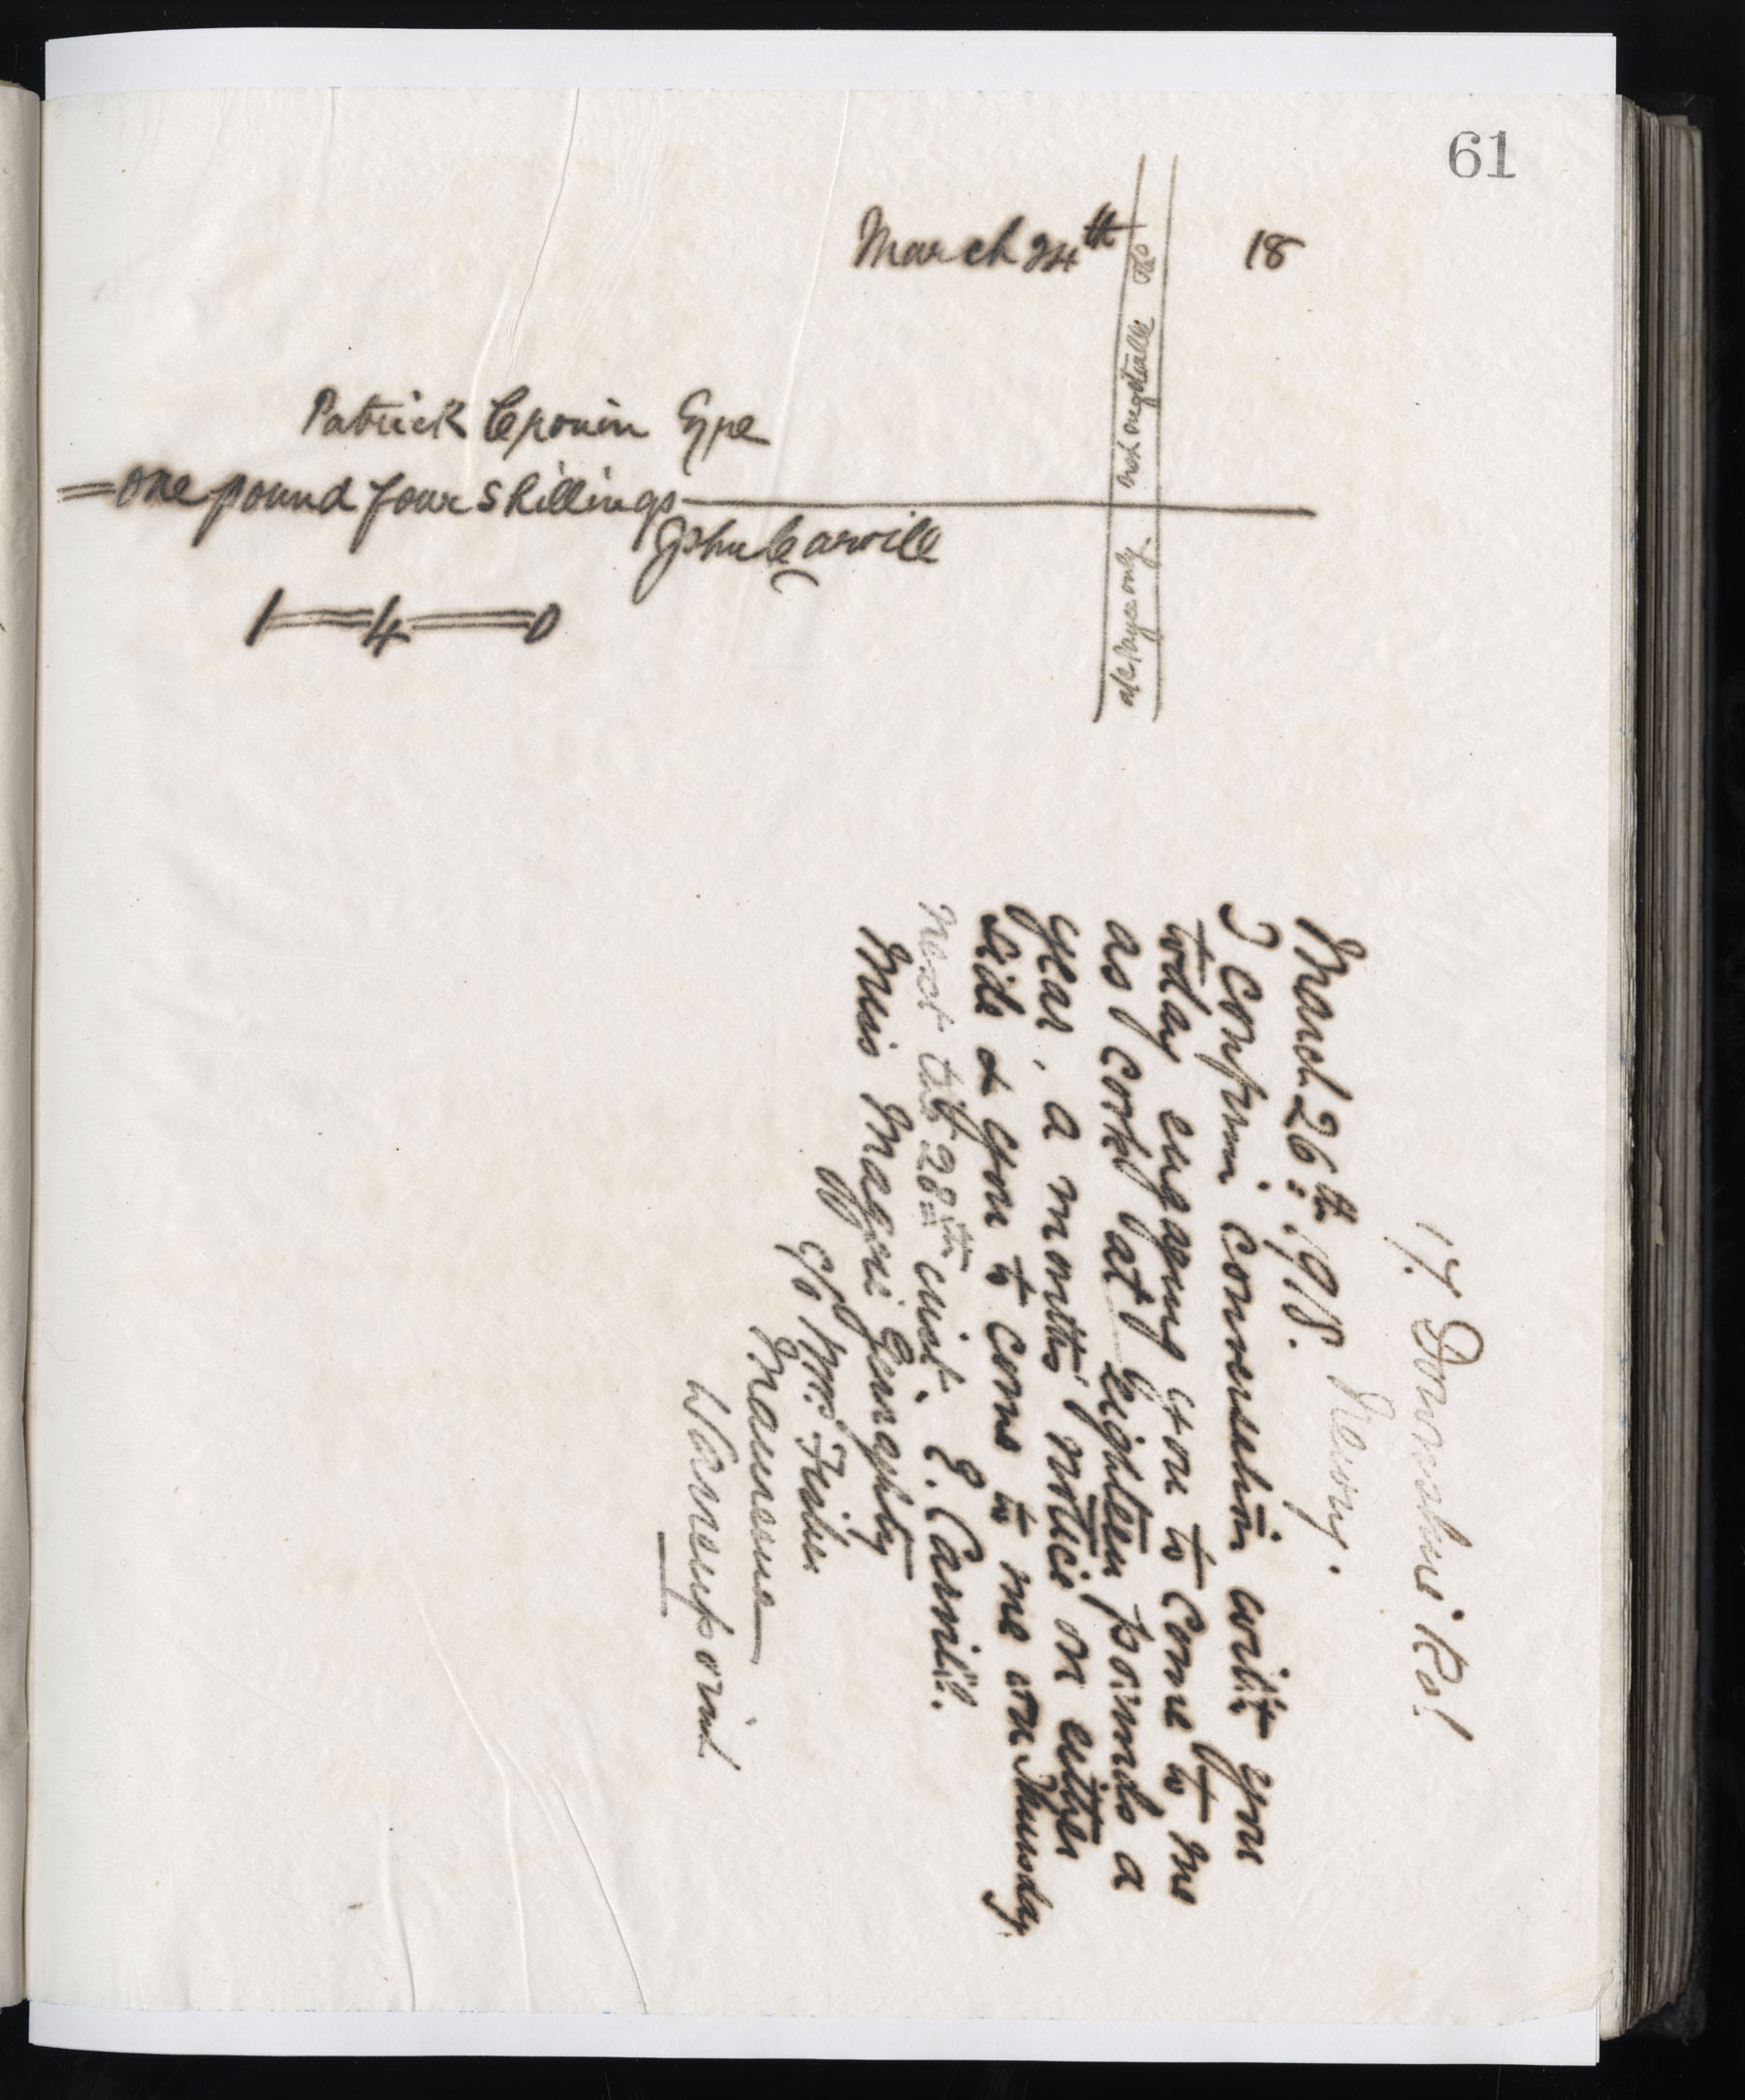 61
March 24th 18
Patrick Cronin Esqre
= one pound four shillings
John Carvill
1 = 4 = 0
a/c Payee only. not negotiable &Co
17 Downshire Rd
Newry.
March 26th: 1918.
I confirm conversation with you
today engaging you to come to me
as cook at Eighteen pounds a
year, a month's notice on either
side & you to come to me on Thursday
next the 28th inst. E. Carvill.
Miss Maggie Geraghty
c/o Wm. Fisher
Warrenpoint